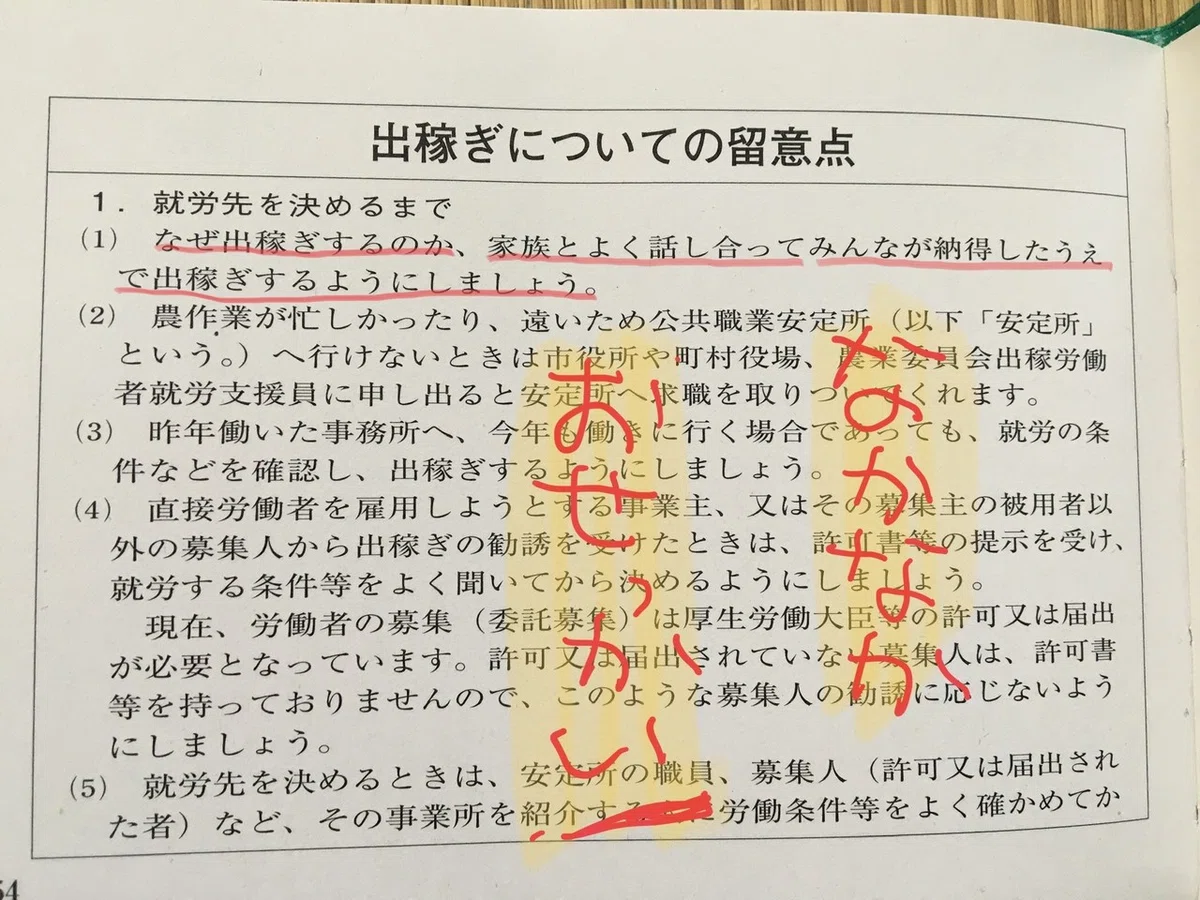 出稼ぎについての留意点
1. 就労先を決めるまで
(1) なぜ出稼ぎするのか、家族とよく話し合ってみんなが納得したうえ
で出稼ぎするようにしましょう。
(2) 農作業が忙しかったり、遠いため公共職業安定所(以下「安定所」
という。)へ行けないときは市役所や町村役場、農業委員会出稼労働
者就労支援員に申し出ると安定所へ求職を取りついでくれます。
(3) 昨年働いた事務所へ、今年も働きに行く場合であっても、就労の条
件などを確認し、出稼ぎするようにしましょう。
(4) 直接労働者を雇用しようとする事業主、又はその募集主の被用者以
外の募集人から出稼ぎの勧誘を受けたときは、許可書等の提示を受け、
就労する条件等をよく聞いてから決めるようにしましょう。
現在、労働者の募集(委託募集)は厚生労働大臣等の許可又は届出
が必要となっています。許可又は届出されていない募集人は、許可書
等を持っておりませんので、このような募集人の勧誘に応じないよう
にしましょう。
(5) 就労先を決めるときは、安定所の職員、募集人(許可又は届出され
た者)など、その事業所を紹介す 労働条件等をよく確かめてか
54
なかなか
おせっかい